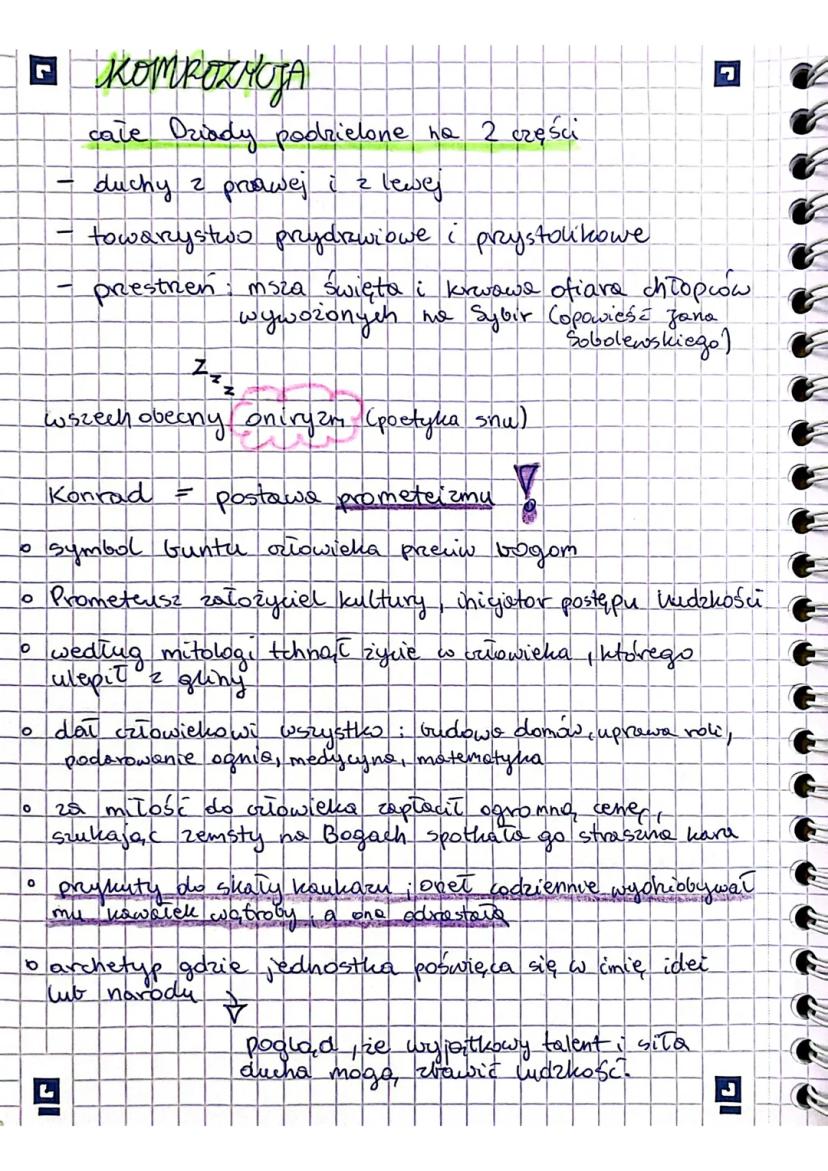 KOMPOZYCJA
całe Dziady podzielone na 2 części
- duchy z prawej i z lewej
- towarzystwo przydrzwiowe i przystolikowe
- przestrzeń : msza święta i krwawa ofiara chłopców
wywożonych na Sybir (opowieść Jana
Sobolewskiego)
Z z z
wszechobecny oniryzm (poetyka snu)
Konrad = postawa prometeizmu !
o symbol buntu człowieka przeciw bogom
o Prometeusz założyciel kultury, inicjator postępu ludzkości
o według mitologi tchnął życie w człowieka, którego
ulepił z gliny
o dał człowiekowi wszystko : budowa domów, uprawa roli,
podarowanie ognia, medycyna, matematyka
o za miłość do człowieka zapłacił ogromną cenę,
szukając zemsty na Bogach spotkała go straszna kara
o przykuty do skały kaukazu ; orzeł codziennie wydziobywał
mu kawałek wątroby, a ona odrastała
o archetyp gdzie jednostka poświęca się w imię idei
lub narodu
pogląd, że wyjątkowy talent i siła
ducha mogą zbawić ludzkość.